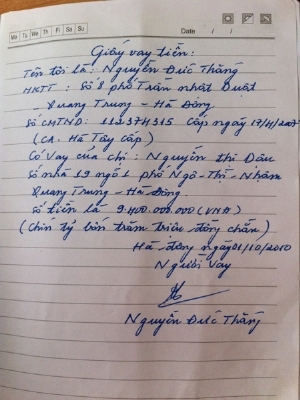 Mo Tu We Th Fr Sa Su
Date / /
Giấy vay tiền:
Tên tôi là: Nguyễn Đức Thắng
HKTT: Số 8 phố Trần Nhật Duật
Quang Trung - Hà Đông
Số CMTND: 112374315 Cấp ngày 17/4/2007
(CA. Hà Tây Cấp)
Có Vay của chị: Nguyễn thị Dậu
Số nhà 19 ngõ 1 phố Ngô-Thì-Nhậm
Quang Trung - Hà Đông
Số tiền là 9.400.000.000 (VNĐ)
(Chín tỷ bốn trăm triệu đồng chẵn)
Hà đông ngày 01/10/2010
Người Vay
Nguyễn Đức Thắng